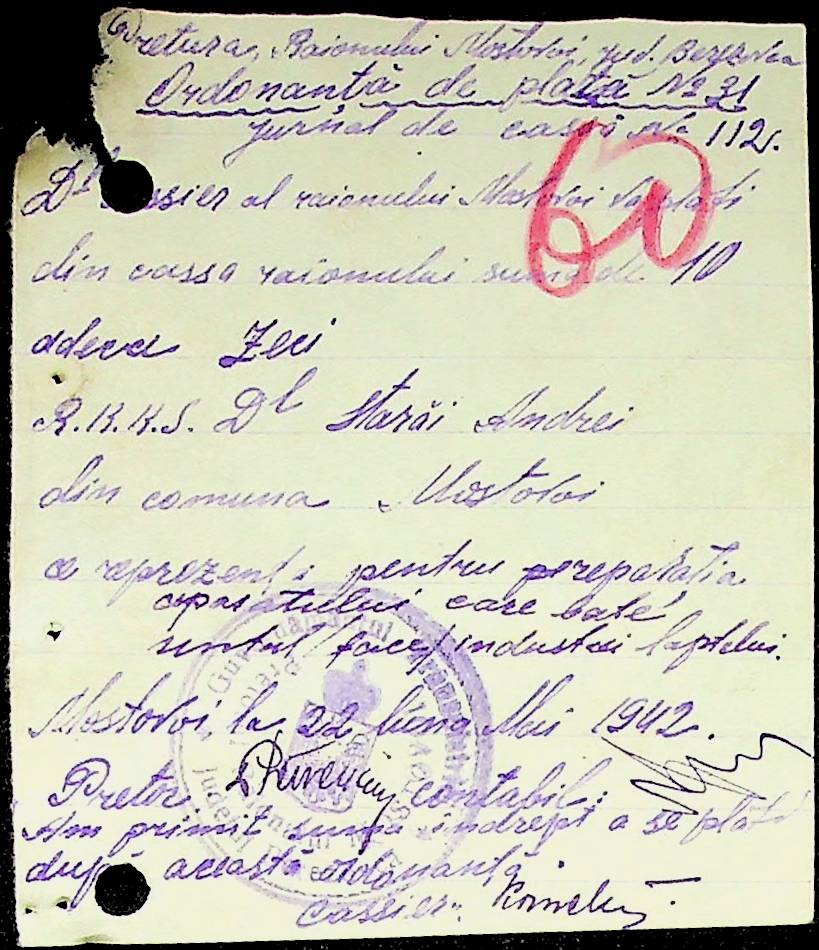 Pretura, Raionului Mostovoi, jud. Berezovca
Ordonanță de plată № 31
jurnal de cassă № 112.
Dl Cassier al raionului Mostovoi va plăti
din cassa raionului suma de 10
adeca Zeci
R.K.K.S. Dl Starăi Andrei
din comuna Mostovoi
ce reprezentă pentru preparatia
aparatului care bate
untul (face) industrii laptelui.
Mostovoi, la 22 luna Mai 1942.
Pretor contabil:
Am primit suma indrept a se plăti
după această ordonanță
cassier:
60
Guvernământul
Județul